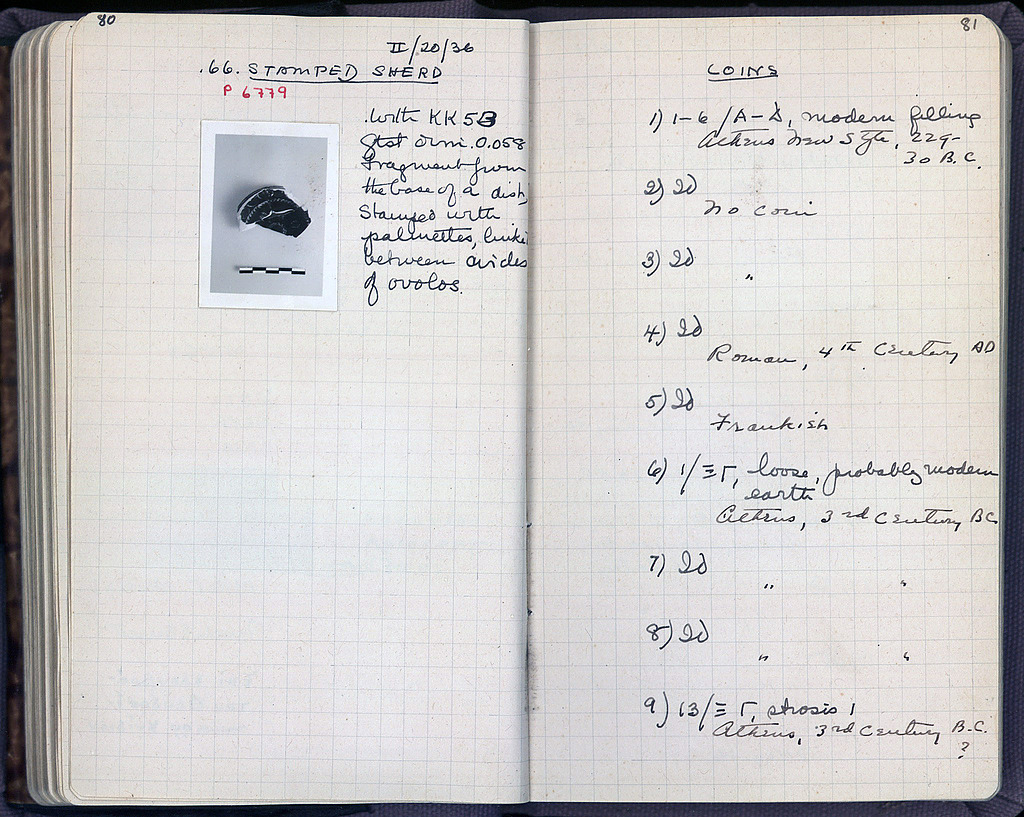 80
II/20/36
.66. STAMPED SHERD
P 6779
.With KK 53
Gtst dim. 0.058
Fragment from
the base of a dish,
Stamped with
palmettes, linked
between circles
of ovolos.
81
COINS
1) 1-6 /A-Δ, modern filling
Athens New Style, 229-
30 B.C.
2) Id
No coin
3) Id
"
4) Id
Roman, 4th Century AD
5) Id
Frankish
6) 1/Ξ Γ, loose, probably modern
earth
Athens, 3rd Century BC
7) Id
" "
8) Id
" "
9) 13/Ξ Γ, strosis 1
Athens, 3rd Century B.C.
?